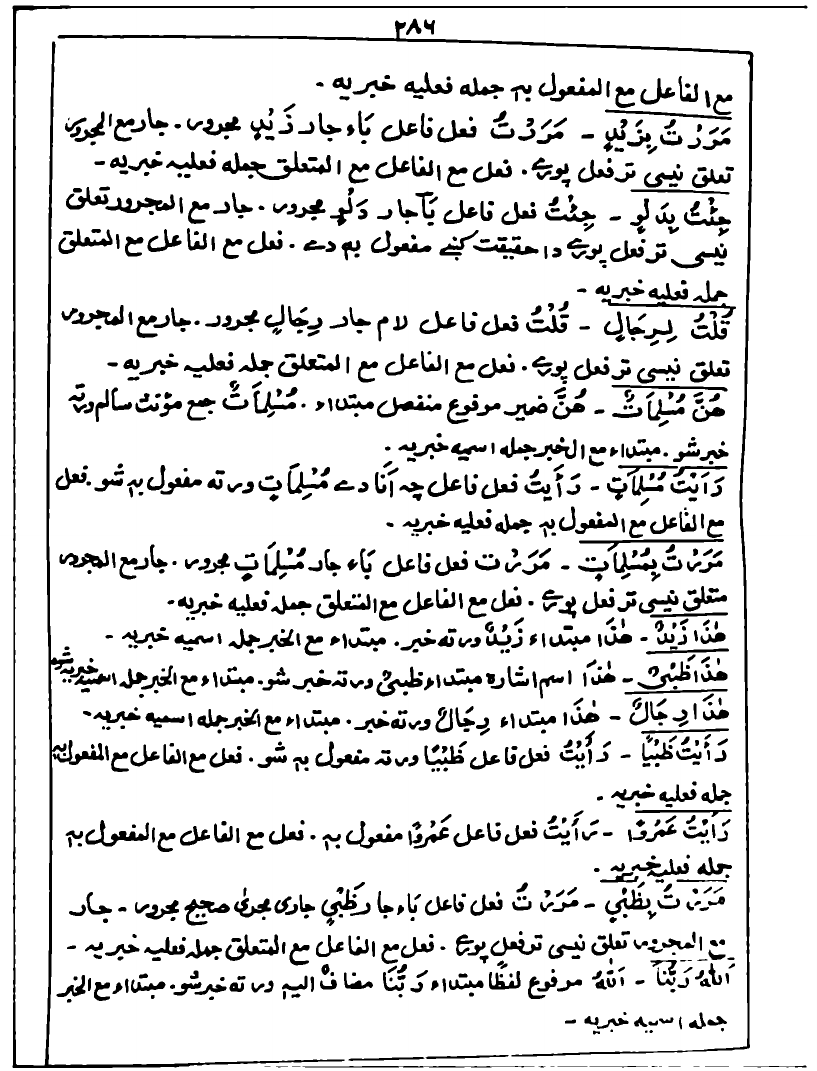 ۲۸۶
مع الفاعل مع المفعول بہ جملہ فعلیہ خبریہ ۔
مَرَرْتُ بِزَیْدٍ ۔ مَرَرْتُ فعل فاعل بَاء جار زَیْدٍ مجرور ۔ جار مع المجرور
تعلق نیسی تر فعل پورے ۔ فعل مع الفاعل مع المتعلق جملہ فعلیہ خبریہ ۔
جِئْتُ بِدَلْوٍ ۔ جِئْتُ فعل فاعل بَآ جار دَلْوٍ مجرور ۔ جار مع المجرور تعلق
نیسی تر فعل پورے دا حقیقت کښے مفعول بہ دے ۔ فعل مع الفاعل مع المتعلق
جملہ فعلیہ خبریہ ۔
قُلْتُ لِرِجَالٍ ۔ قُلْتُ فعل فاعل لام جار رِجَالٍ مجرور ۔ جار مع المجرور
تعلق نیسی تر فعل پورے ۔ فعل مع الفاعل مع المتعلق جملہ فعلیہ خبریہ ۔
هُنَّ مُسْلِمَاتٌ ۔ هُنَّ ضمیر مرفوع منفصل مبتداء ۔ مُسْلِمَاتٌ جمع مؤنث سالم ورتہ
خبر شو ۔ مبتداء مع الخبر جملہ اسمیہ خبریہ ۔
رَأَیْتُ مُسْلِمَاتٍ ۔ رَأَیتُ فعل فاعل چہ اَنَا دے مُسْلِمَاتٍ ورتہ مفعول بہ شو ۔ فعل
مع الفاعل مع المفعول بہ جملہ فعلیہ خبریہ ۔
مَرَرْتُ بِمُسْلِمَاتٍ ۔ مَرَرْت فعل فاعل بَاء جار مُسْلِمَاتٍ مجرور ۔ جار مع المجرور
متعلق نیسی تر فعل پورے ۔ فعل مع الفاعل مع المتعلق جملہ فعلیہ خبریہ ۔
هٰذَا زَیْدٌ ۔ هٰذَا مبتداء زَیْدٌ ورتہ خبر ۔ مبتداء مع الخبر جملہ اسمیہ خبریہ ۔
هٰذَا ظَبْیٌ ۔ هٰذَا اسم اشارہ مبتداء ظبیٌ ورتہ خبر شو ۔ مبتداء مع الخبر جملہ اسمیہ خبریہ شو
هٰذَا رِجَالٌ ۔ هٰذَا مبتداء رِجَالٌ ورتہ خبر ۔ مبتداء مع الخبر جملہ اسمیہ خبریہ ۔
رَأَیْتُ ظَبْیًا ۔ رَأَیْتُ فعل فاعل ظَبْیًا ورتہ مفعول بہ شو ۔ فعل مع الفاعل مع المفعول بہ
جملہ فعلیہ خبریہ ۔
رَأَیْتُ عَمْرًوا ۔ رَأَیْتُ فعل فاعل عَمْرًوا مفعول بہ ۔ فعل مع الفاعل مع المفعول بہ
جملہ فعلیہ خبریہ ۔
مَرَرْتُ بِظَبْیٍ ۔ مَرَرْتُ فعل فاعل بَاء جار ظَبْیٍ جاری مجریٰ صحیح مجرور ۔ جار
مع المجرور تعلق نیسی تر فعل پورے ۔ فعل مع الفاعل مع المتعلق جملہ فعلیہ خبریہ ۔
اَللّٰهُ رَبُّنَا ۔ اَللّٰهُ مرفوع لفظًا مبتداء رَبُّنَا مضافٌ الیہ ورتہ خبر شو ۔ مبتداء مع الخبر
جملہ اسمیہ خبریہ ۔